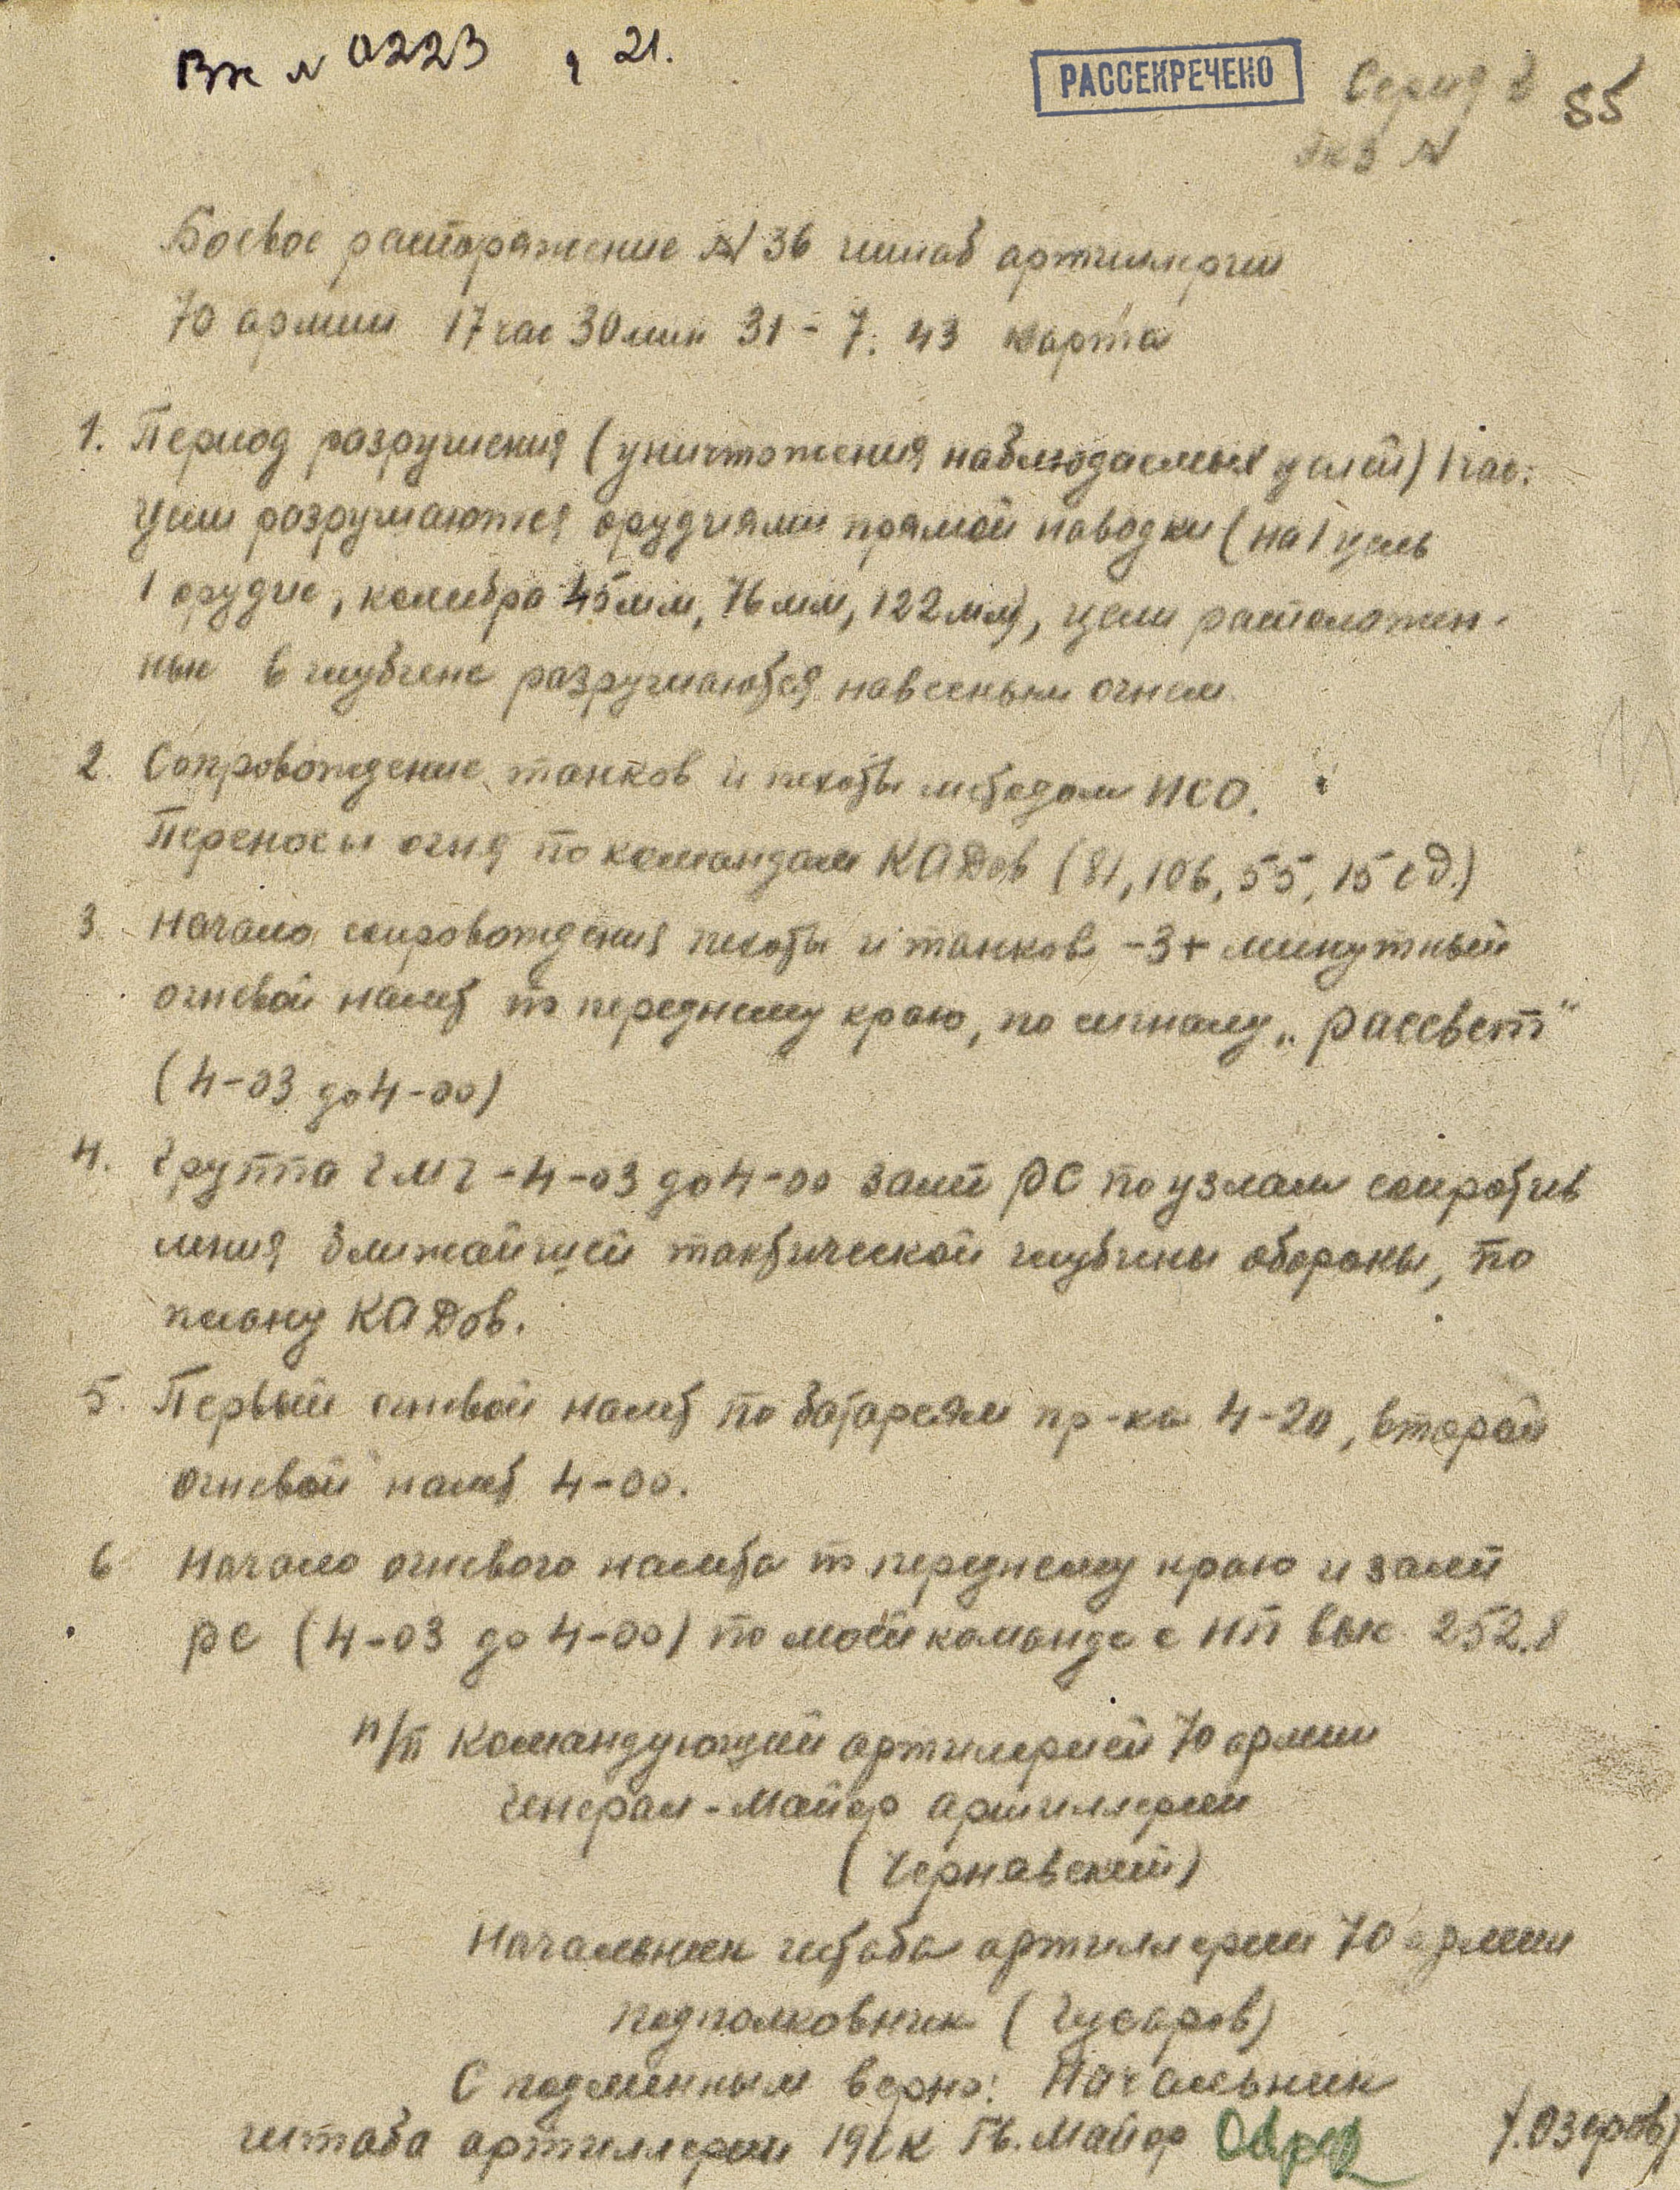 Вх № 0223 , 21.
РАССЕКРЕЧЕНО
55
Экз №
Боевое распоряжение № 36 штаб артиллерии
70 армии 17 час 30 мин 31-7. 43 карта
1. Период разрушения (уничтожения наблюдаемых целей) 1 час.
Цели разрушаются орудиями прямой наводки (на 1 цель
1 орудие, калибра 45мм, 76мм, 122мм), цели расположен-
ные в глубине разрушаются навесным огнем.
2. Сопровождение танков и пехоты методом ПСО.
Переносы огня по командам КАДов (81, 106, 55, 15 сд.)
3. Начало сопровождения пехоты и танков -3х минутный
огневой налет по переднему краю, по сигналу „Рассвет"
(4-03 до 4-00)
4. Группа ГМЧ - 4-03 до 4-00 залп РС по узлам сопротив
ления ближайшей тактической глубины обороны, по
плану КАДов.
5. Первый огневой налет по батареям пр-ка 4-20, второй
огневой налет 4-00.
6 Начало огневого налета по переднему краю и залп
РС (4-03 до 4-00) по моей команде с НП выс. 252.8
п/п Командующий артилерией 70 армии
Генерал-Майор артиллерии
(Чернявский)
Начальник штаба артиллерии 70 армии
подполковник (Гусаров)
С подлинным верно: Начальник
штаба артиллерии 19ск Гв. Майор /.Озеров/